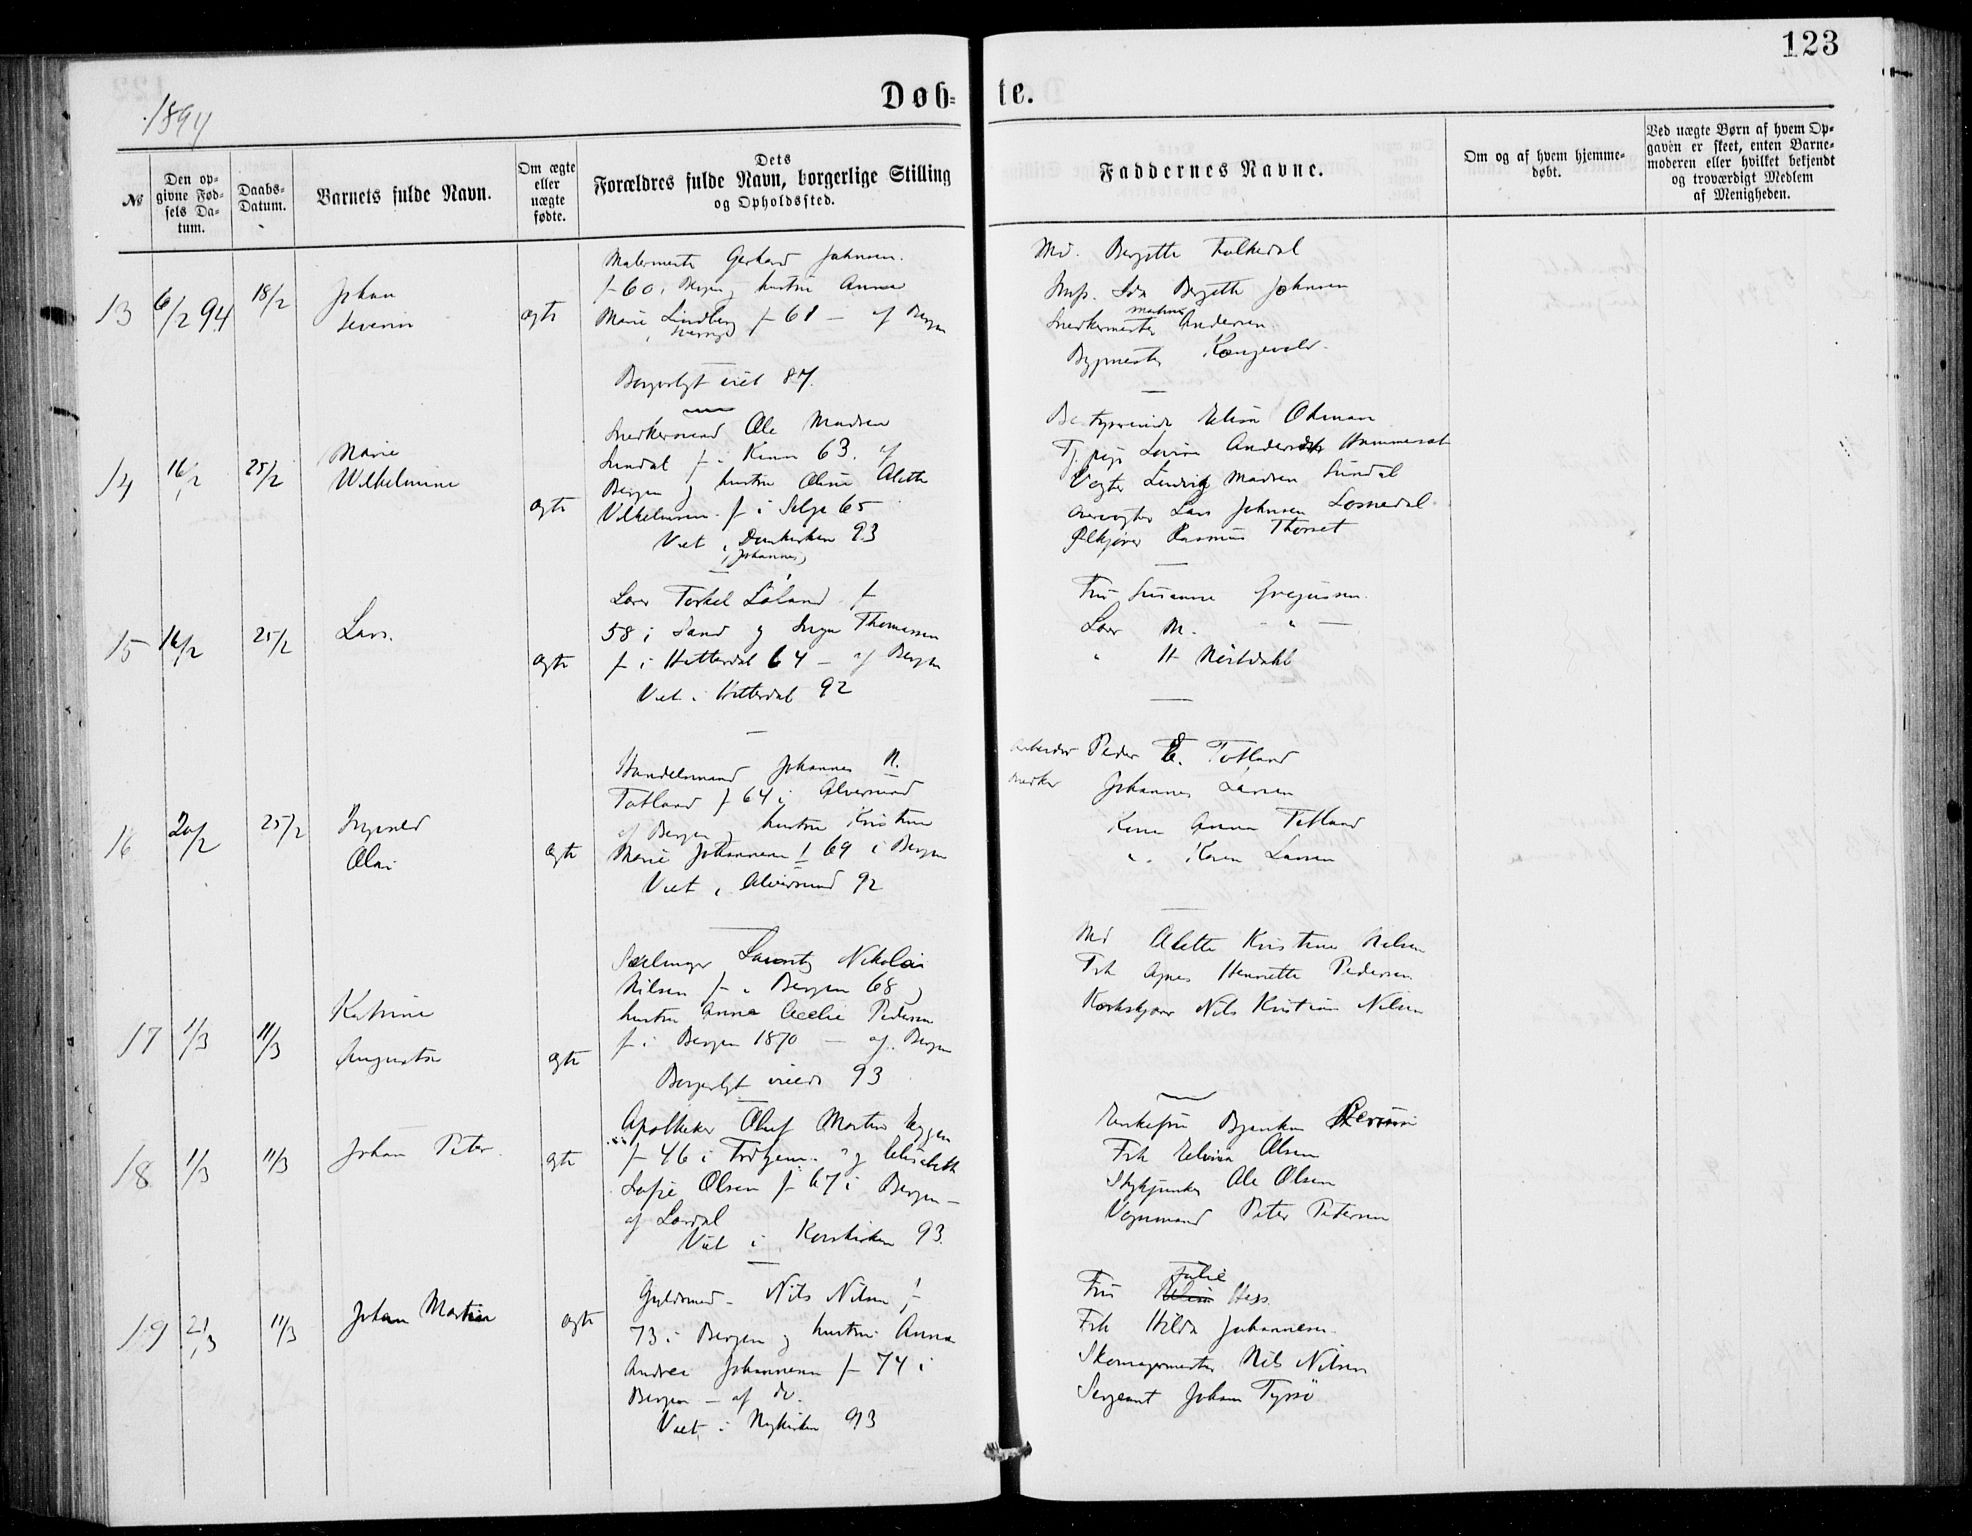 123
1894
Døb- te.
№
Den op-
givne Fød-
sels Da-
tum.
Daabs-
Datum.
Barnets fulde Navn.
Om ægte
eller
uægte
fødte.
Dets
Forældres fulde Navn, borgerlige Stilling
og Opholdssted.
Faddernes Navne.
Om og af hvem hjemme-
døbt.
Ved uægte Børn af hvem Op-
gaven er skeet, enten Barne-
moderen eller hvilket bekjendt
og troværdigt Medlem
af Menigheden.
13 6/2 94 18/2 Johan
Severin
ægte
Malermester Gerhard Johnsen.
f 60 i Bergen og hustru Anna
Marie Lindberg f 61 – af Bergen
i Sverige
Borgerligt viet 87.
Md. Bergitte Falkedal
Jmf. Ida Bergitte Johnsen
Snedkermester Andersen
Bygmester
14 16/2 25/2 Marie
Wilhelmine
ægte
Snedkersvend Ole Madsen
Sundal f. i Kinn 63. af
Bergen og hustru Oline Alette
Vilhelmsen f i Selje 65
Viet i Domkirken 93
(Johannes)
Bestyrerinde Elisa Ohman
Tj. pige Lovise
Vogter Ludvig Madsen Sundal
Lars Johnsen Losnedal
Ølkjører Rasmus Thorset
15 16/2 25/2 Lars.
ægte
Lærer Torkel Løland f
58 i Sand og Inga Thomassen
f i Hitterdal 64 – af Bergen
Viet i Hitterdal 92
Fru Susanne Gregussen.
Lærer M. " –
" H Nordahl
16 20/2 25/2 Ingvald
Olai
ægte
Handelsmand Johannes N.
Totland f 64 i Alversund
af Bergen og hustru Kristine
Marie Johannesen f 69 i Bergen
Viet i Alversund 92
Arbeider Peder E. Totland
Snedker Johannes Larsen
Kone Anna Totland
" Karen Larsen
17 1/3 11/3 Katrine
Augusta
ægte
Lauritz Nikolai
Nilsen f i Bergen 68 og
hustru Anna Cecilie Pedersen
f i Bergen 1870 – af Bergen
Borgerligt viede 93
Md Alette Kristine Nilsen
Frk Agnes Henriette Pedersen
Korkskjærer Nils Kristian Nilsen
18 1/3 11/3 Johan Peter.
ægte
Apotheker Oluf Martin Eggen
f 46 i Trdhjem. og Elisabeth
Sofie Olsen f 67 i Bergen –
af Lærdal
Viet i Korskirken 93.
Enkefru
Frk Elvina Olsen
Stykjunker Ole Olsen
Vognmand Peter Petersen
19 21/3 11/3 Johan Martin
ægte
Guldsmed – Nils Nilsen f
73 i Bergen og hustru Anna
Andrea Johannesen f 74 i
Bergen – af do.
Viet i Nykirken 93
Julie
Fru Hess.
Frk Hilda Johannesen.
Skomagermester Nils Nilsen
Sergeant Johan Tyssø